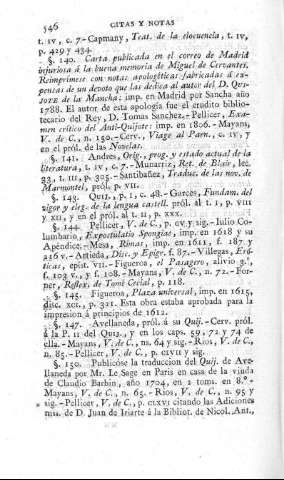 546 CITAS Y NOTAS
t. IV, c. 7.-Capmany, Teat. de la elocuencia, t. IV,
p. 429 y 434.
§. 140. Carta publicada en el correo de Madrid
injuriosa á la buena memoria de Miguel de Cervantes.
Reimprímese con notas apologéticas fabricadas á ex-
pensas de un devoto que las dedica al autor del D. QUI-
JOTE de la Mancha: imp. en Madrid por Sancha año
1788. El autor de esta apología fue el erudito biblio-
tecario del Rey, D. Tomas Sanchez.-Pellicer, Exa-
men crítico del Anti-Quijote: imp. en 1806.-Mayans,
V. de C., n. 150.-Cerv., Viage al Parn., c. IV, y
en el pról. de las Novelas.
§. 141. Andres, Orig., prog. y estado actual de la
literatura, t. IV, c. 7.-Munarriz, Ret. de Blair, lec.
33, t. III, p. 295.-Santibañez, Traduc. de las nov. de
Marmontel, pról. p. VII.
§. 143. QUIJ., p. 1, c. 48.-Garces, Fundam. del
vigor y eleg. de la lengua castell. pról. al t. 1, p. VIII
y XII, y en el pról. al t. II, p. XXX.
§. 144. Pellicer, V. de C., p. CV y sig.-Iulio Co-
lumbario, Expostulatio Spongiae, imp. en 1618 y su
Apéndice.-Mesa, Rimas, imp. en 1611, f. 187 y
216 v.-Artieda, Disc. y Epigr. f. 87.-Villegas, Eró-
ticas, epíst. VII.-Figueroa, el Pasagero, alivio 3.º,
f. 103 v., y f. 108.-Mayans, V. de C., n. 72.-For-
ner, Reflex. de Tomé Cecial, p. 118.
§. 145. Figueroa, Plaza universal, imp. en 1615,
disc. XCI, p. 321. Esta obra estaba aprobada para la
impresion á principios de 1612.
§. 147. Avellaneda, pról. á su Quij.-Cerv. pról.
á la P. II del QUIJ., y en los caps. 59, 72 y 74 de
ella.-Mayans, V. de C., ns. 64 y sig.-Rios, V. de C.,
n. 85.-Pellicer, V. de C., p. CLVII y sig.
§. 150. Publicóse la traduccion del Quij. de Ave-
llaneda por Mr. Le Sage en Paris en casa de la viuda
de Claudio Barbin, año 1704, en 2 toms. en 8.º-
Mayans, V. de C., n. 65.-Rios, V. de C., n. 95 y
sig.-Pellicer, V. de C., p. CLXVI citando las Adiciones
ms. de D. Juan de Iriarte á la Bibliot. de Nicol. Ant.,